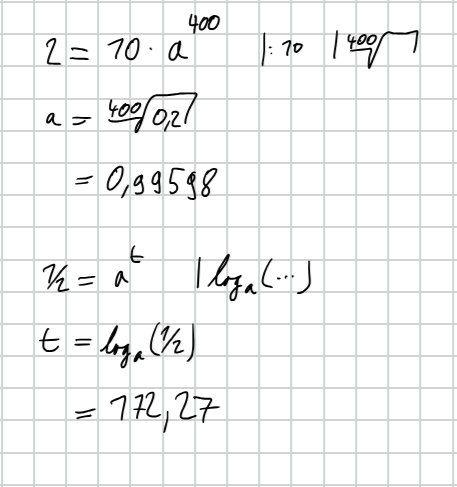 2 = 10 · a^400 |: 10 | ⁴⁰⁰√
a = ⁴⁰⁰√0,2
= 0,99598
1/2 = a^t | log_a(...)
t = log_a(1/2)
= 172,27